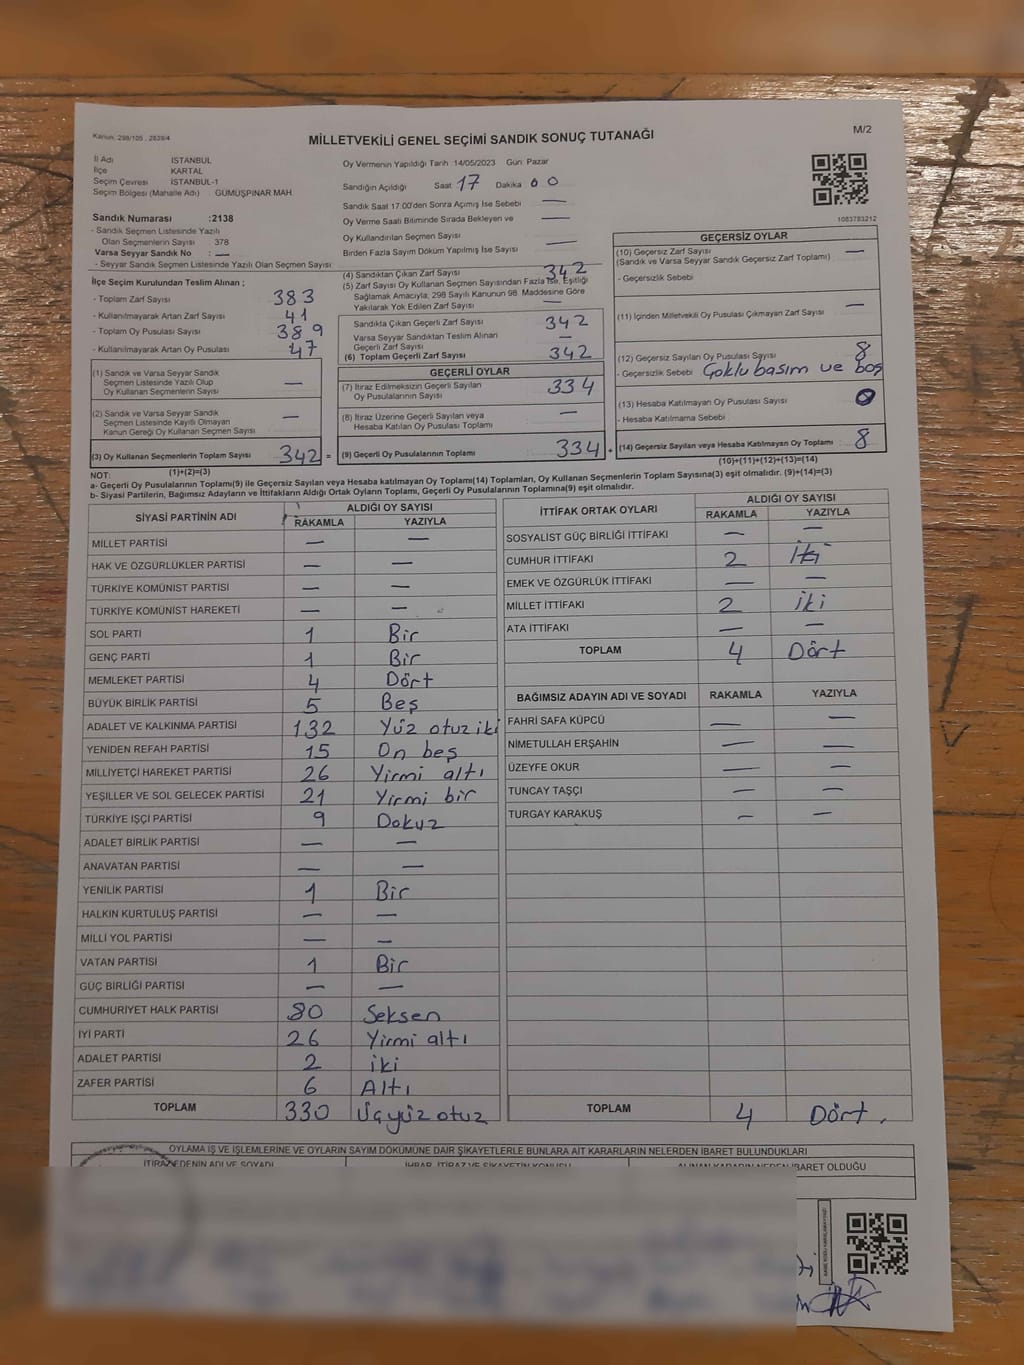 Kanun: 298/105 , 2839/4
MİLLETVEKİLİ GENEL SEÇİMİ SANDIK SONUÇ TUTANAĞI
M/2
İl Adı İSTANBUL
İlçe KARTAL
Seçim Çevresi İSTANBUL-1
Seçim Bölgesi (Mahalle Adı) GÜMÜŞPINAR MAH
Sandık Numarası :2138
- Sandık Seçmen Listesinde Yazılı
Olan Seçmenlerin Sayısı : 378
Varsa Seyyar Sandık No : —
- Seyyar Sandık Seçmen Listesinde Yazılı Olan Seçmen Sayısı:
Oy Vermenin Yapıldığı Tarih :14/05/2023 Gün: Pazar
Sandığın Açıldığı Saat 17 Dakika 00
Sandık Saat 17:00'den Sonra Açımış İse Sebebi —
Oy Verme Saati Bitiminde Sırada Bekleyen ve —
Oy Kullandırılan Seçmen Sayısı
Birden Fazla Sayım Döküm Yapılmış İse Sayısı —
1083783212
İlçe Seçim Kurulundan Teslim Alınan ;
- Toplam Zarf Sayısı 383
- Kullanılmayarak Artan Zarf Sayısı 41
- Toplam Oy Pusulası Sayısı 389
- Kullanılmayarak Artan Oy Pusulası 47
(1) Sandık ve Varsa Seyyar Sandık
Seçmen Listesinde Yazılı Olup —
Oy Kullanan Seçmenlerin Sayısı
(2) Sandık ve Varsa Seyyar Sandık
Seçmen Listesinde Kayıtlı Olmayan —
Kanun Gereği Oy Kullanan Seçmen Sayısı
(3) Oy Kullanan Seçmenlerin Toplam Sayısı 342 =
(1)+(2)=(3)
(4) Sandıktan Çıkan Zarf Sayısı 342
(5) Zarf Sayısı Oy Kullanan Seçmen Sayısından Fazla İse, Eşitliği
Sağlamak Amacıyla, 298 Sayılı Kanunun 98. Maddesine Göre
Yakılarak Yok Edilen Zarf Sayısı —
Sandıkta Çıkan Geçerli Zarf Sayısı 342
Varsa Seyyar Sandıktan Teslim Alınan
Geçerli Zarf Sayısı —
(6) Toplam Geçerli Zarf Sayısı 342
GEÇERLİ OYLAR
(7) İtiraz Edilmeksizin Geçerli Sayılan
Oy Pusulalarının Sayısı 334
(8) İtiraz Üzerine Geçerli Sayılan veya
Hesaba Katılan Oy Pusulası Toplamı —
(9) Geçerli Oy Pusulalarının Toplamı 334 +
GEÇERSİZ OYLAR
(10) Geçersiz Zarf Sayısı —
(Sandık ve Varsa Seyyar Sandık Geçersiz Zarf Toplamı)
- Geçersizlik Sebebi
(11) İçinden Milletvekili Oy Pusulası Çıkmayan Zarf Sayısı —
(12) Geçersiz Sayılan Oy Pusulası Sayısı 8
- Geçersizlik Sebebi Çoklu basım ve boş
(13) Hesaba Katılmayan Oy Pusulası Sayısı
- Hesaba Katılmama Sebebi
(14) Geçersiz Sayılan veya Hesaba Katılmayan Oy Toplamı 8
(10)+(11)+(12)+(13)=(14)
NOT:
a- Geçerli Oy Pusulalarının Toplamı(9) ile Geçersiz Sayılan veya Hesaba katılmayan Oy Toplamı(14) Toplamları, Oy Kullanan Seçmenlerin Toplam Sayısına(3) eşit olmalıdır. (9)+(14)=(3)
b- Siyasi Partilerin, Bağımsız Adayların ve İttifakların Aldığı Ortak Oyların Toplamı, Geçerli Oy Pusulalarının Toplamına(9) eşit olmalıdır.
SİYASİ PARTİNİN ADI ALDIĞI OY SAYISI
RAKAMLA YAZIYLA
MİLLET PARTİSİ — —
HAK VE ÖZGÜRLÜKLER PARTİSİ — —
TÜRKİYE KOMÜNİST PARTİSİ — —
TÜRKİYE KOMÜNİST HAREKETİ — —
SOL PARTİ 1 Bir
GENÇ PARTİ 1 Bir
MEMLEKET PARTİSİ 4 Dört
BÜYÜK BİRLİK PARTİSİ 5 Beş
ADALET VE KALKINMA PARTİSİ 132 Yüz otuz iki
YENİDEN REFAH PARTİSİ 15 On beş
MİLLİYETÇİ HAREKET PARTİSİ 26 Yirmi altı
YEŞİLLER VE SOL GELECEK PARTİSİ 21 Yirmi bir
TÜRKİYE İŞÇİ PARTİSİ 9 Dokuz
ADALET BİRLİK PARTİSİ — —
ANAVATAN PARTİSİ — —
YENİLİK PARTİSİ 1 Bir
HALKIN KURTULUŞ PARTİSİ — —
MİLLİ YOL PARTİSİ — —
VATAN PARTİSİ 1 Bir
GÜÇ BİRLİĞİ PARTİSİ — —
CUMHURİYET HALK PARTİSİ 80 Seksen
İYİ PARTİ 26 Yirmi altı
ADALET PARTİSİ 2 iki
ZAFER PARTİSİ 6 Altı
TOPLAM 330 Üçyüz otuz
İTTİFAK ORTAK OYLARI ALDIĞI OY SAYISI
RAKAMLA YAZIYLA
SOSYALİST GÜÇ BİRLİĞİ İTTİFAKI — —
CUMHUR İTTİFAKI 2 İki
EMEK VE ÖZGÜRLÜK İTTİFAKI — —
MİLLET İTTİFAKI 2 İki
ATA İTTİFAKI — —
TOPLAM 4 Dört
BAĞIMSIZ ADAYIN ADI VE SOYADI RAKAMLA YAZIYLA
FAHRİ SAFA KÜPCÜ — —
NİMETULLAH ERŞAHİN — —
ÜZEYFE OKUR — —
TUNCAY TAŞÇI — —
TURGAY KARAKUŞ — —
TOPLAM 4 Dört.
OYLAMA İŞ VE İŞLEMLERİNE VE OYLARIN SAYIM DÖKÜMÜNE DAİR ŞİKAYETLERLE BUNLARA AİT KARARLARIN NELERDEN İBARET BULUNDUKLARI
İTİRAZ EDENİN ADI VE SOYADI İHBAR, İTİRAZ VE ŞİKAYETİN KONUSU ALINAN KARARIN NEDEN İBARET OLDUĞU